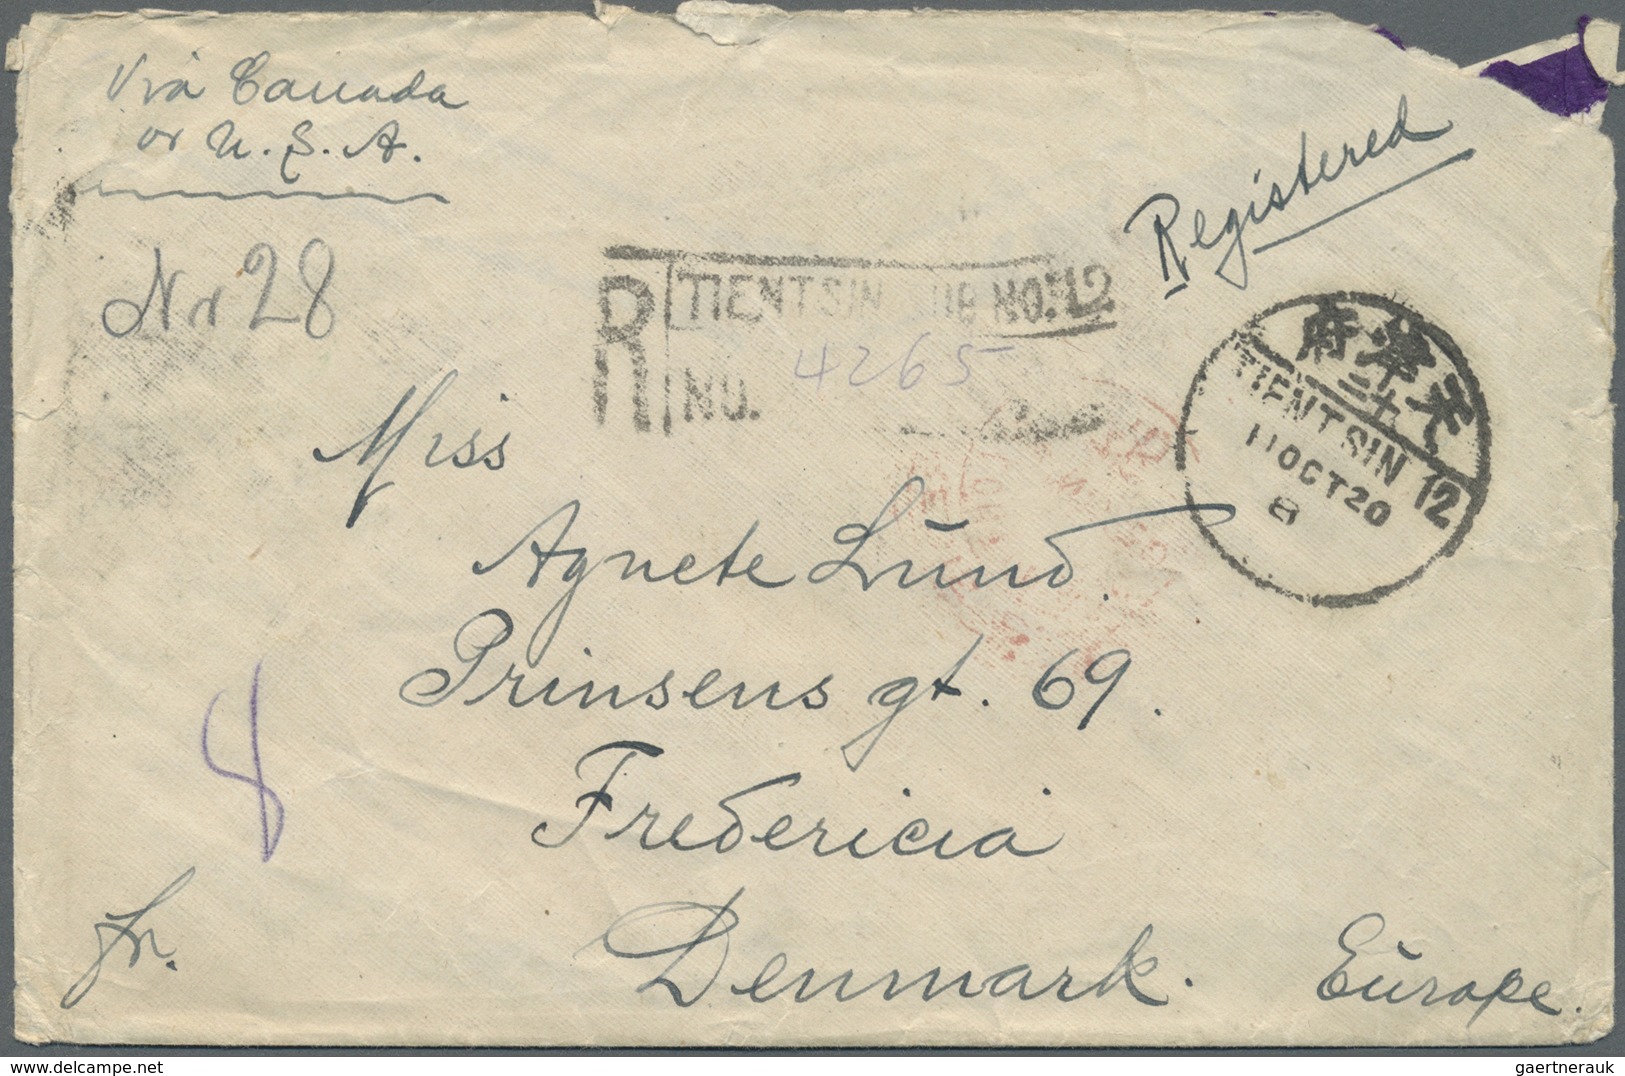 Via Canada
or U. S. A.
Registered
Nr 28
R
TIENTSIN SUB NO. 12
NO. 4265
天津府
二十
TIENTSIN 12
11 OCT 20
8
Miss
Agnete Lund.
Prinsens gt. 69.
Fredericia
Denmark.
Europe.
fr.
delcampe.net
gaertnerauk